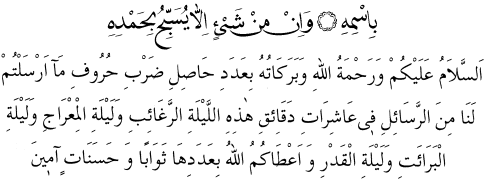 بِاسْمِهِ ۞ وَاِنْ مِنْ شَىْءٍ اِلاَّ يُسَبِّحُ بِحَمْدِهِ
اَلسَّلاَمُ عَلَيْكُمْ وَرَحْمَةُ اللهِ وَبَرَكَاتُهُ بِعَدَدِ حَاصِلِ ضَرْبِ حُرُوفِ مَآ اَرْسَلْتُمْ
لَنَا مِنَ الرَّسَائِلِ فِى عَاشِرَاتِ دَقَائِقِ هٰذِهِ اللَّيْلَةِ الرَّغَائِبِ وَلَيْلَةِ الْمِعْرَاجِ وَلَيْلَةِ
الْبَرَائَتِ وَلَيْلَةِ الْقَدْرِ وَ اَعْطَاكُمُ اللهُ بِعَدَدِهَا ثَوَابًا وَ حَسَنَاتٍ آمِينَ